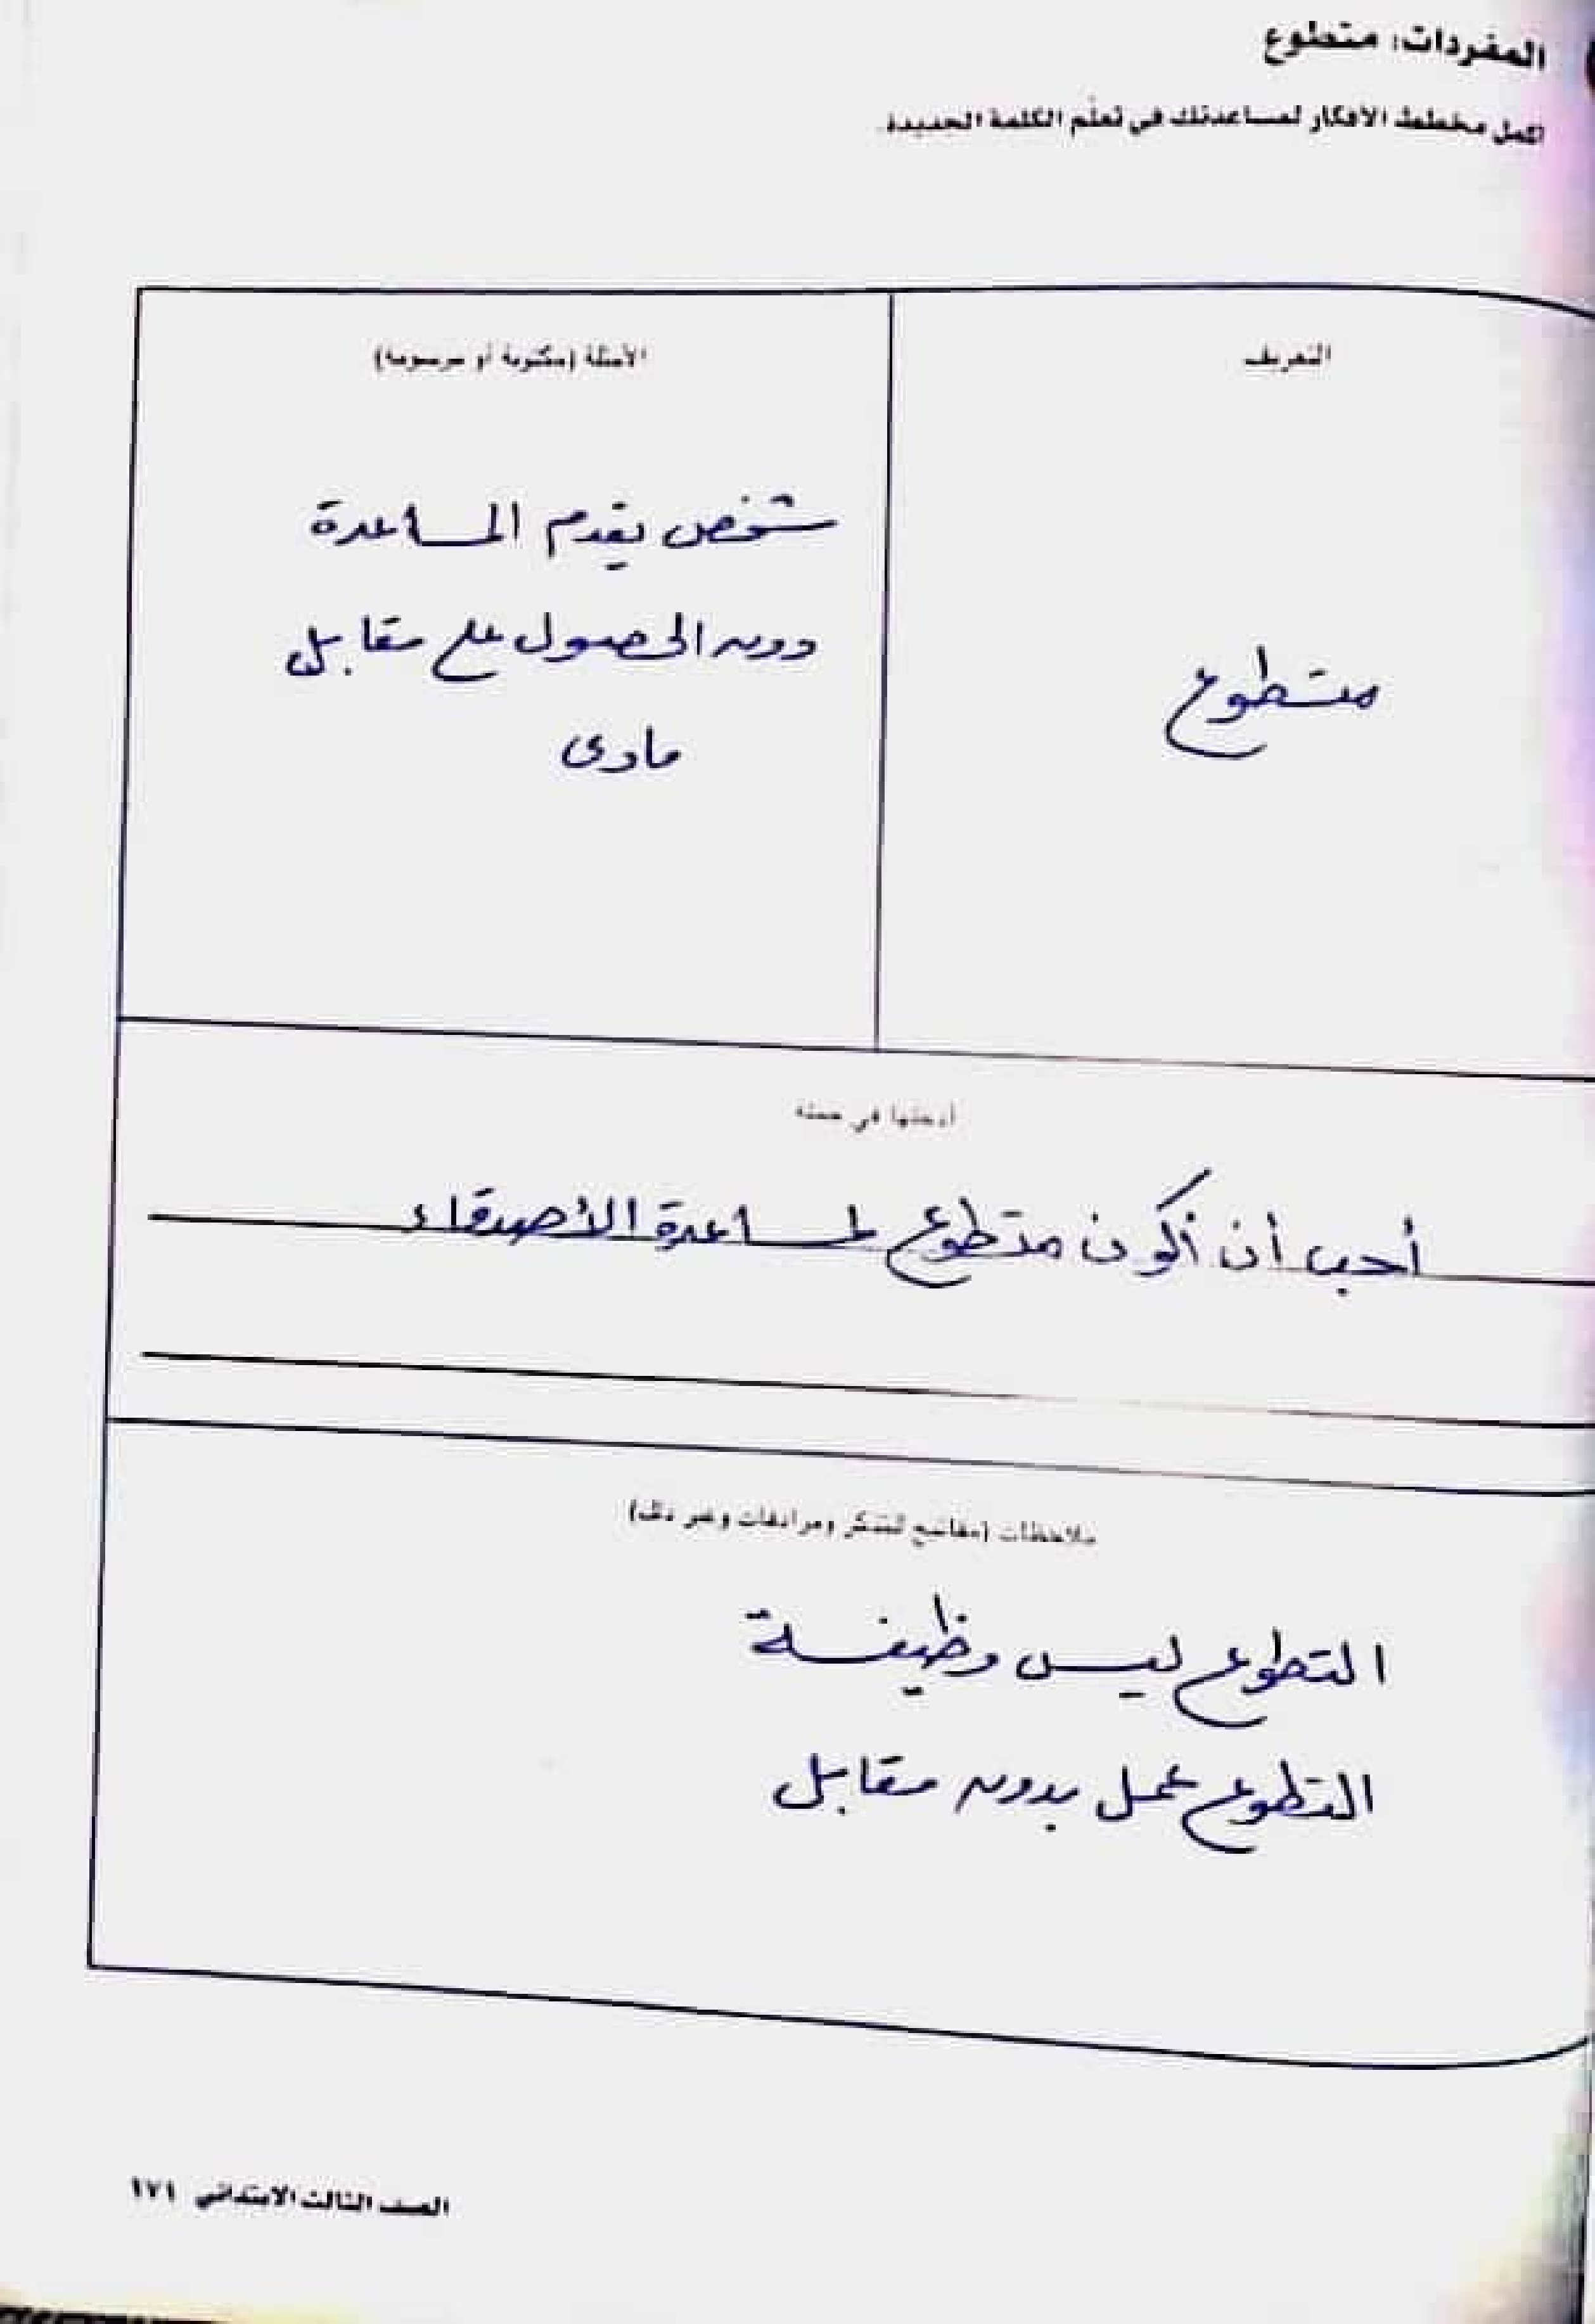 المفردات: متطوع
اكمل مخطط الأفكار لمساعدتك في تعلّم الكلمة الجديدة.
التعريف
الأمثلة (مكتوبة أو مرسومة)
متطوع
شخص يقدم المساعدة
دون الحصول على مقابل
مادى
أدخلها في جملة
أحب أن أكون متطوع لمساعدة الأصدقاء
ملاحظات (مفاتيح للتذكر ومرادفات وغير ذلك)
التطوع ليس وظيفة
التطوع عمل بدون مقابل
الصف الثالث الابتدائي ١٧١